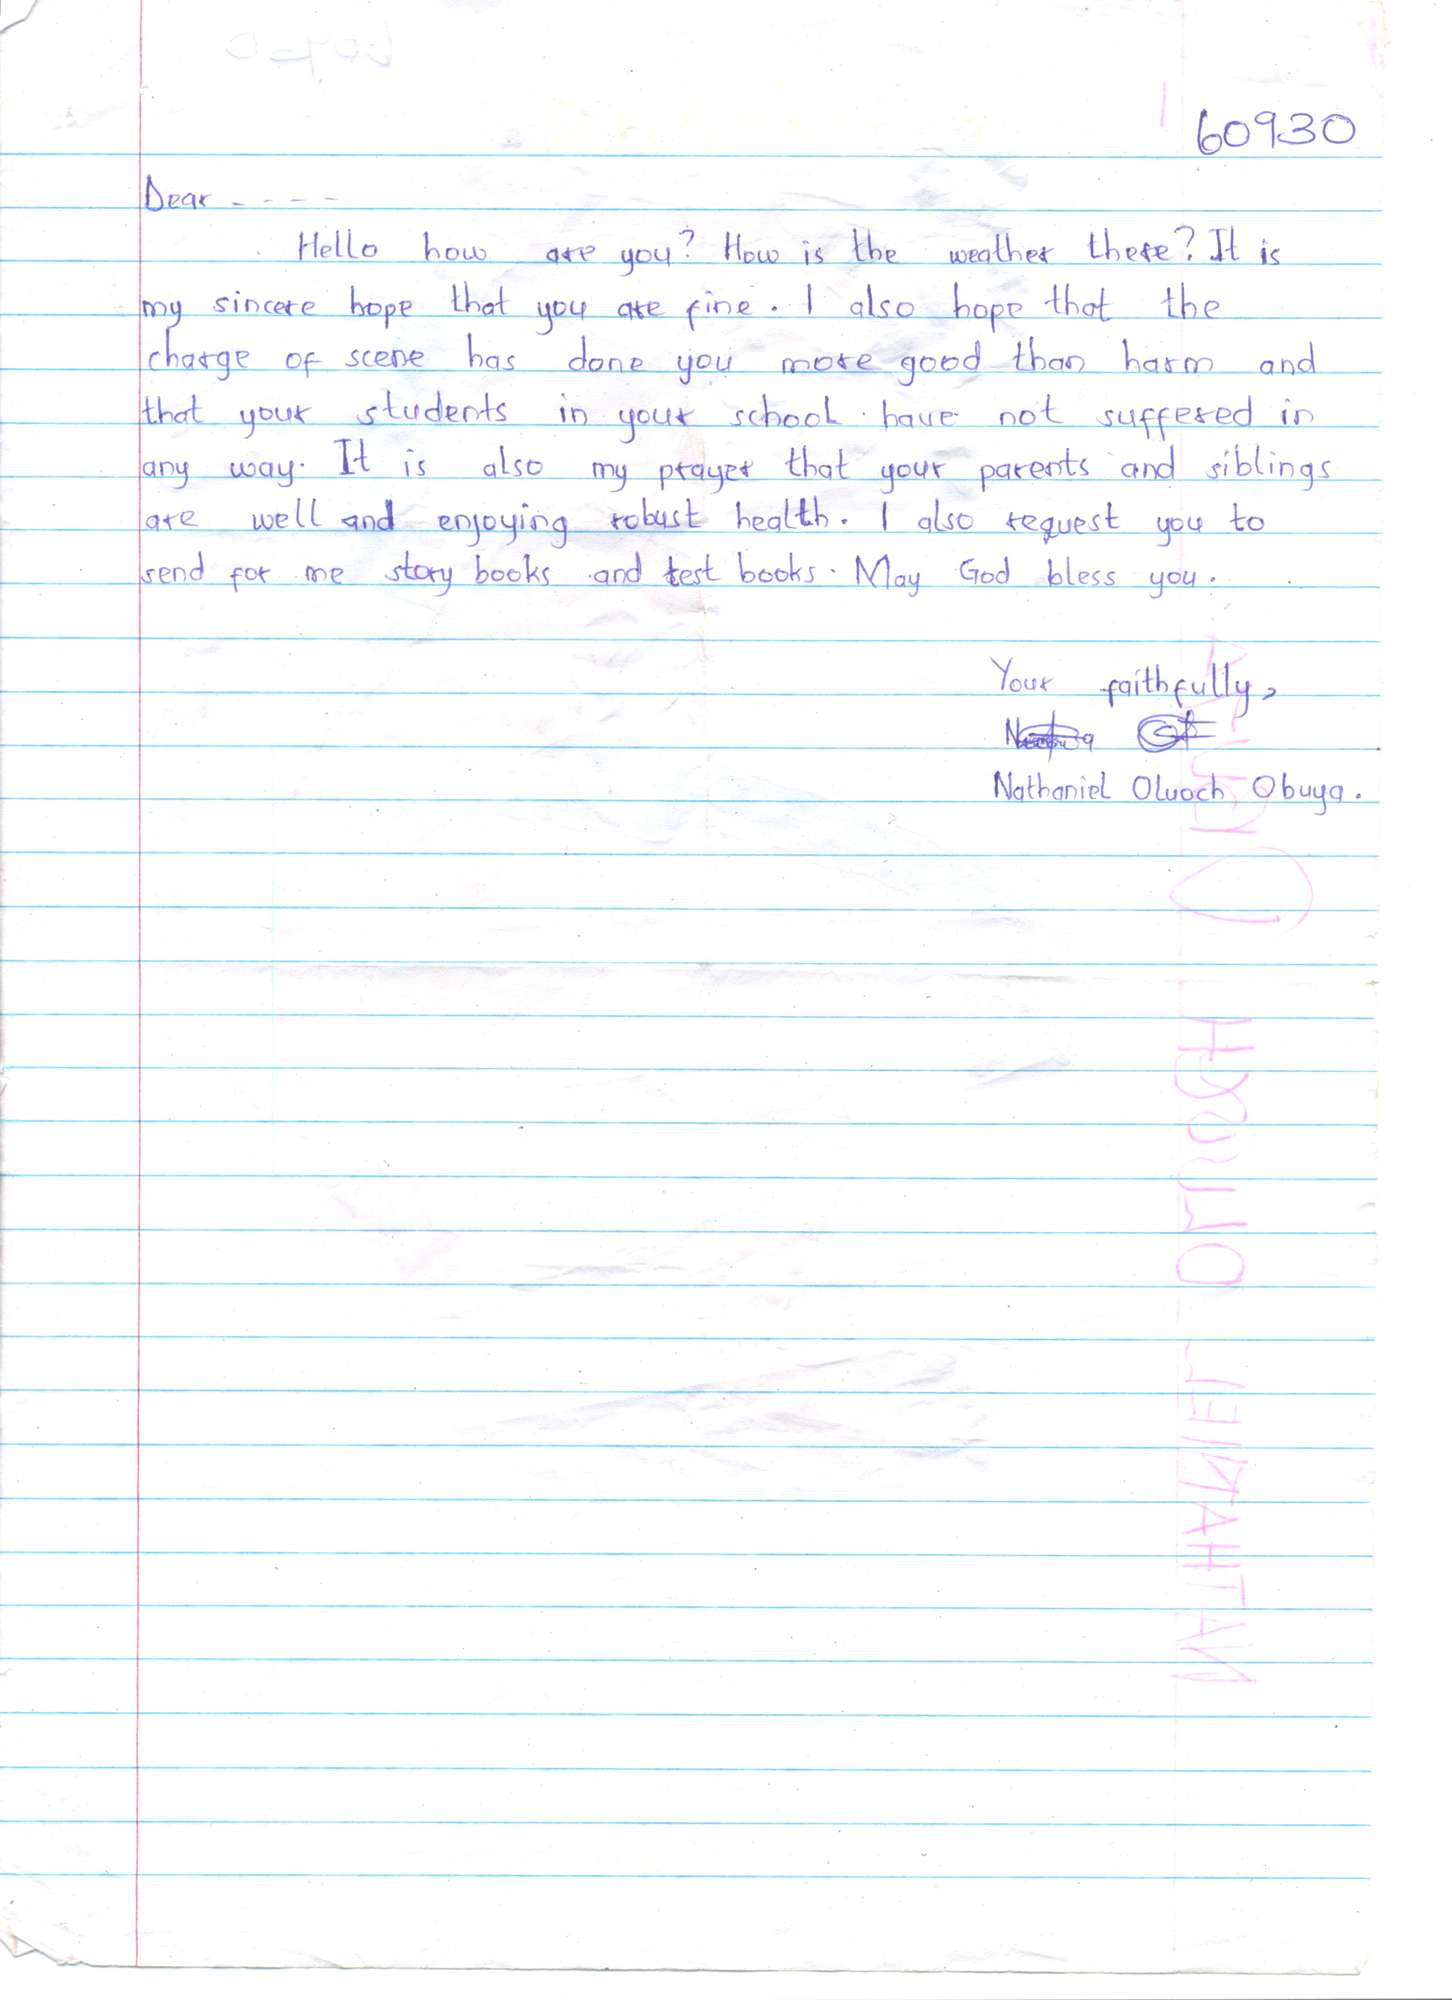 60930
Dear - - - -
Hello how are you? How is the weather there? It is
my sincere hope that you are fine. I also hope that the
charge of scene has done you more good than harm and
that your students in your school have not suffered in
any way. It is also my prayer that your parents and siblings
are well and enjoying robust health. I also request you to
send for me story books and test books. May God bless you.
Your faithfully,
Nathaniel Oluoch Obuya.